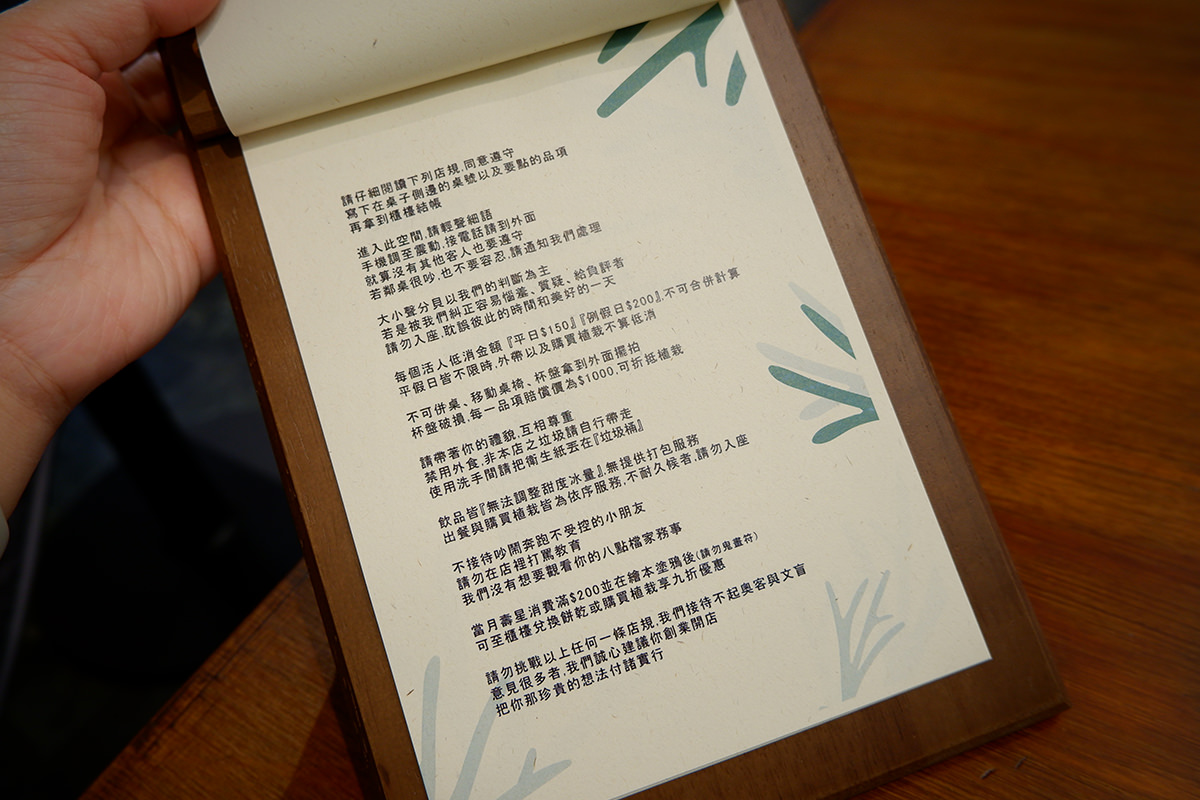 請仔細閱讀下列店規,同意遵守
寫下在桌子側邊的桌號以及要點的品項
再拿到櫃檯結帳
進入此空間,請輕聲細語
手機調至震動,接電話請到外面
就算沒有其他客人也要遵守
若鄰桌很吵,也不要容忍,請通知我們處理
大小聲分貝以我們的判斷為主
若是被我們糾正容易惱羞、質疑、給負評者
請勿入座,耽誤彼此的時間和美好的一天
每個活人低消金額『平日$150』『例假日$200』,不可合併計算
平假日皆不限時,外帶以及購買植栽不算低消
不可併桌、移動桌椅、杯盤拿到外面擺拍
杯盤破損,每一品項賠償價為$1000,可折抵植栽
請帶著你的禮貌,互相尊重
禁用外食,非本店之垃圾請自行帶走
使用洗手間請把衛生紙丟在『垃圾桶』
飲品皆『無法調整甜度冰量』,無提供打包服務
出餐與購買植栽皆為依序服務,不耐久候者,請勿入座
不接待吵鬧奔跑不受控的小朋友
請勿在店裡打罵教育
我們沒有想要觀看你的八點檔家務事
當月壽星消費滿$200並在繪本塗鴉後(請勿鬼畫符)
可至櫃檯兌換餅乾或購買植栽享九折優惠
請勿挑戰以上任何一條店規,我們接待不起奧客與文盲
意見很多者,我們誠心建議你創業開店
把你那珍貴的想法付諸實行